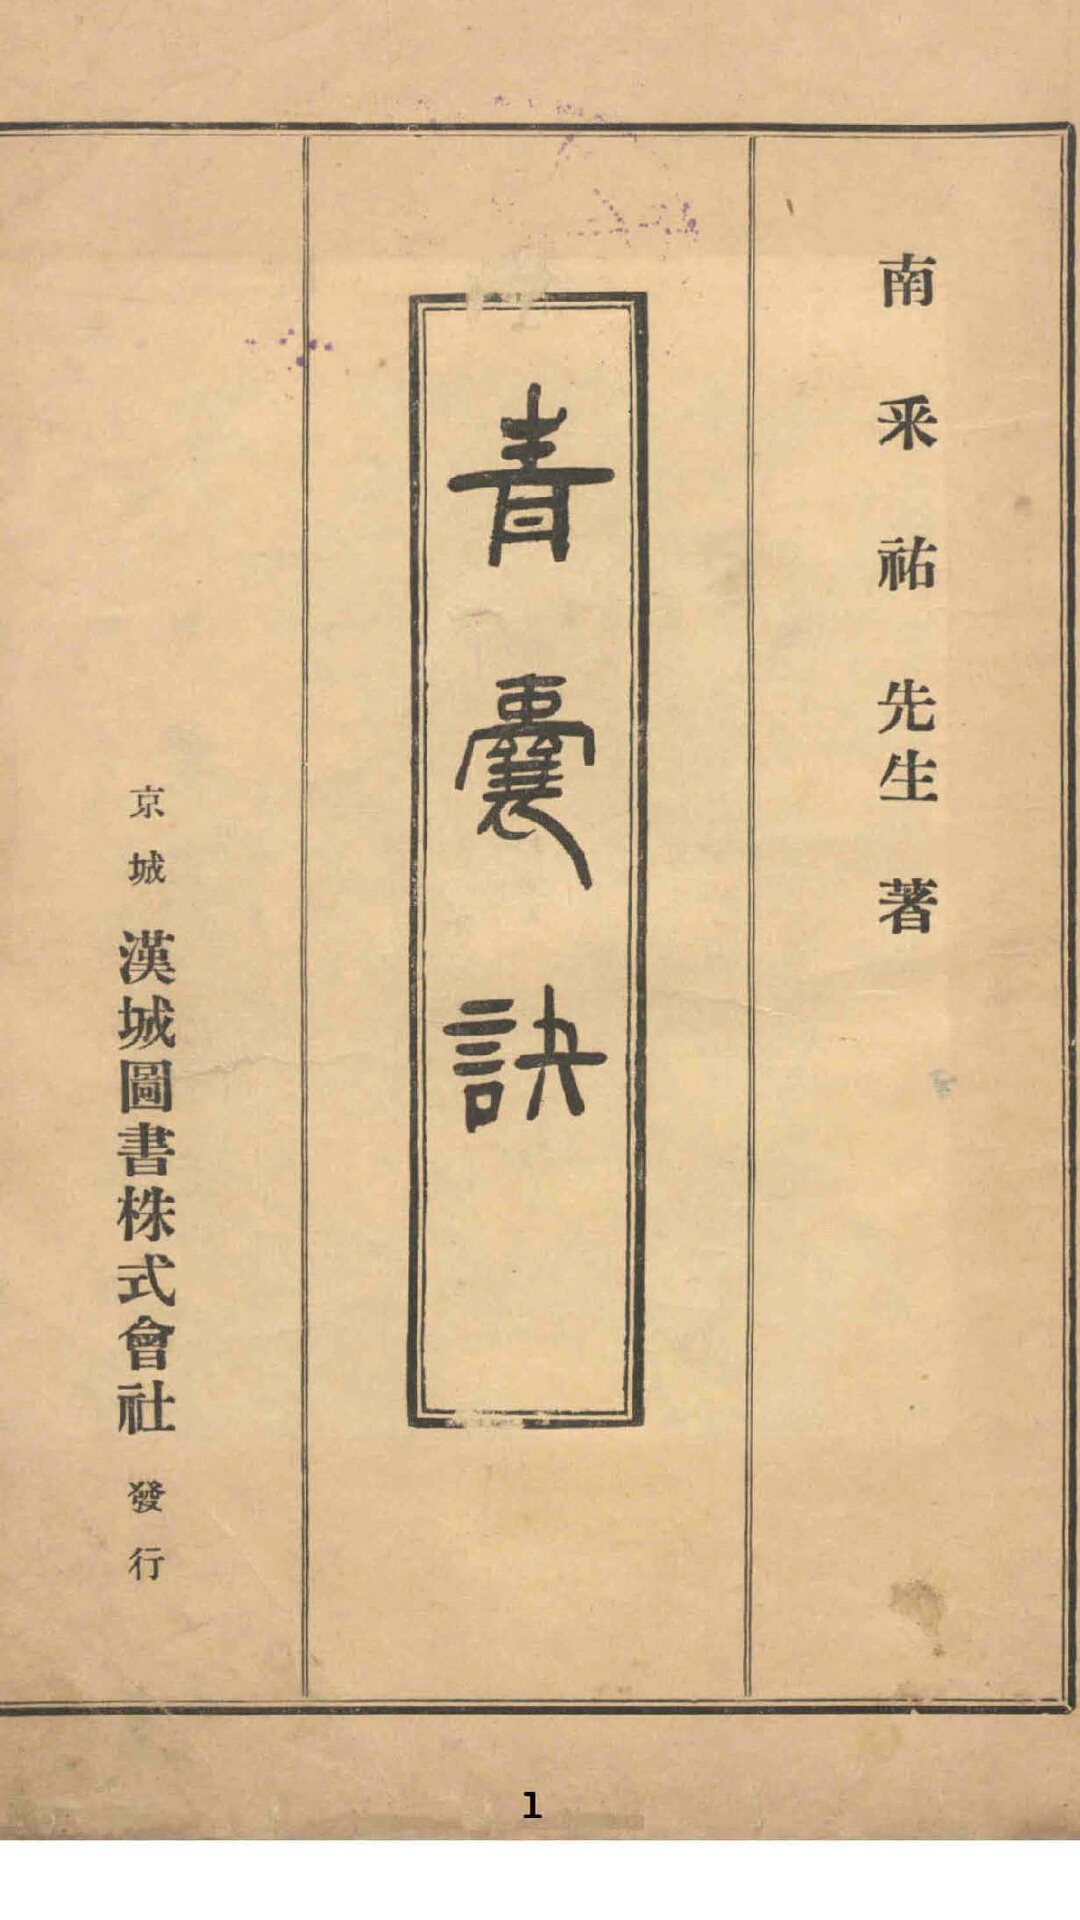 南采祐先生著
青囊訣
京城 漢城圖書株式會社 發行
1